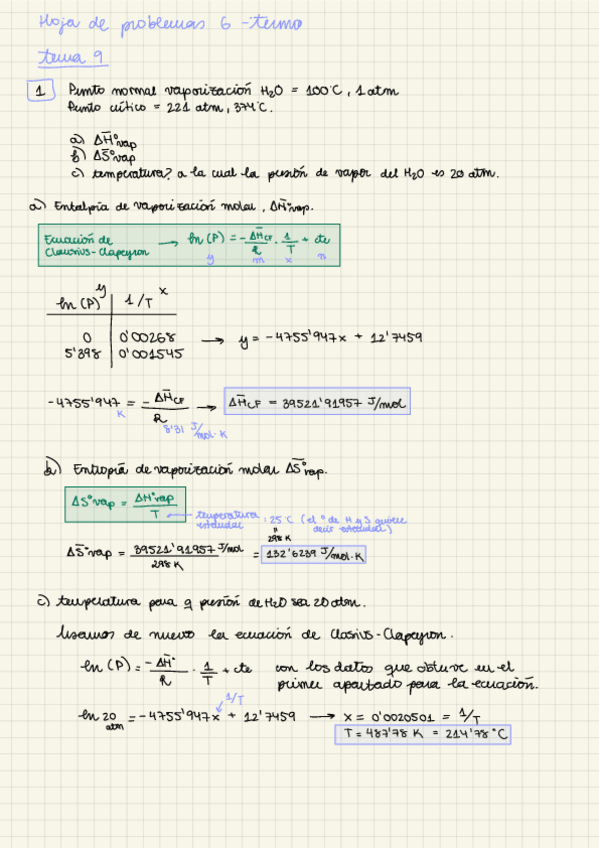 Hoja de problemas 6 - termo
tema 9
1 Punto normal vaporización H₂O = 100°C, 1 atm
Punto crítico = 221 atm, 374°C.
a) ΔH̄°vap
b) ΔS̄°vap
c) temperatura? a la cual la presión de vapor del H₂O es 20 atm.
a) Entalpía de vaporización molar, ΔH̄°vap.
Ecuación de Clausius-Clapeyron → ln (P) = - ΔH̄CF/R · 1/T + cte
y m x n
ln (P) y | 1/T x
0 | 0'00268
5'398 | 0'001545 → y = -4755'947x + 12'7459
-4755'947 K = - ΔH̄CF / R → ΔH̄CF = 39521'91957 J/mol
8'31 J/mol·K
b) Entropía de vaporización molar ΔS̄°vap.
ΔS°vap = ΔH°vap / T ← temperatura estándar : 25°C (el ° de H y S quiere decir estándar)
" 298 K
ΔS̄°vap = 39521'91957 J/mol / 298 K = 132'6239 J/mol·K
c) temperatura para q presión de H₂O sea 20 atm.
Usamos de nuevo la ecuación de Clasius-Clapeyron.
ln (P) = -ΔH̄°/R · 1/T + cte con los datos que obtuve en el
primer apartado para la ecuación.
1/T
ln 20 atm = -4755'947x + 12'7459 → x = 0'0020501 = 1/T
T = 487'78 K = 214'78 °C